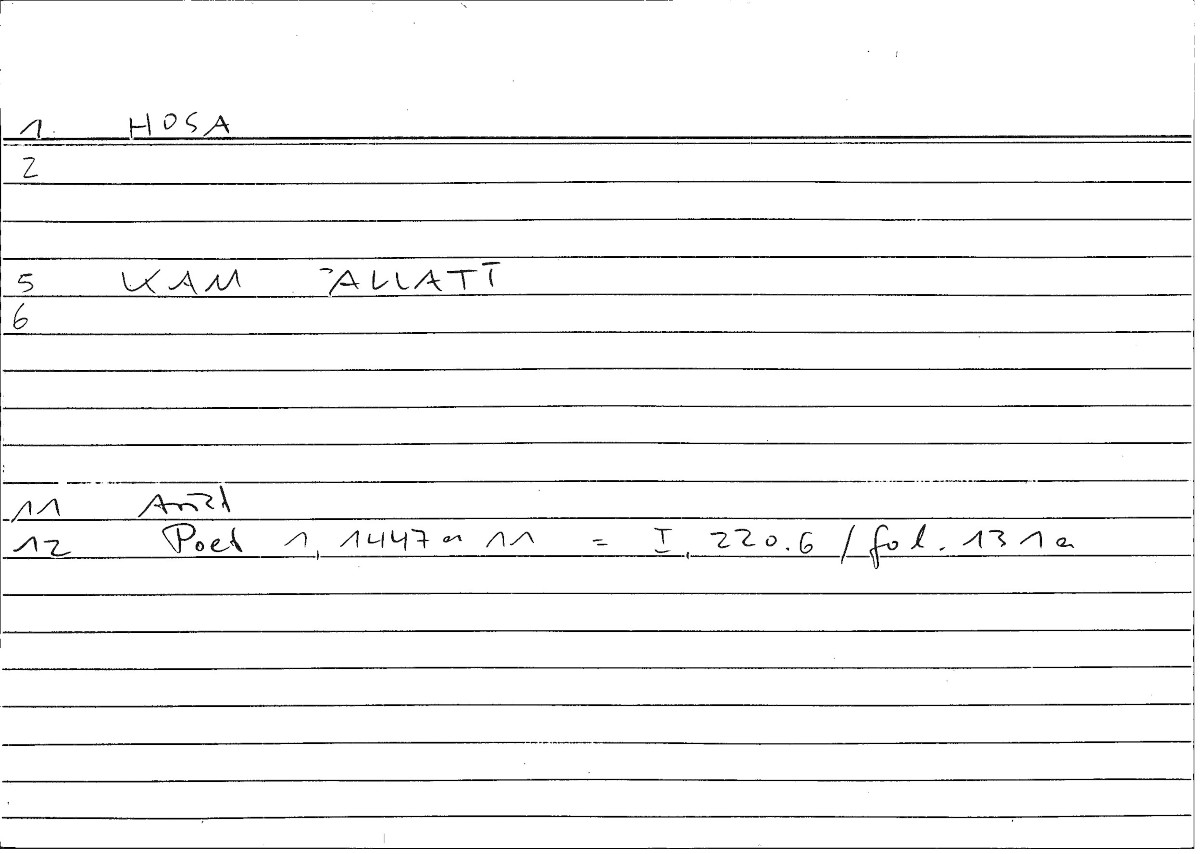 1. HOSA
2
5 KAM ʾALLATĪ
6
11 Arist
12 Poet 1, 1447 a 11 = I, 220.6 / fol. 131a